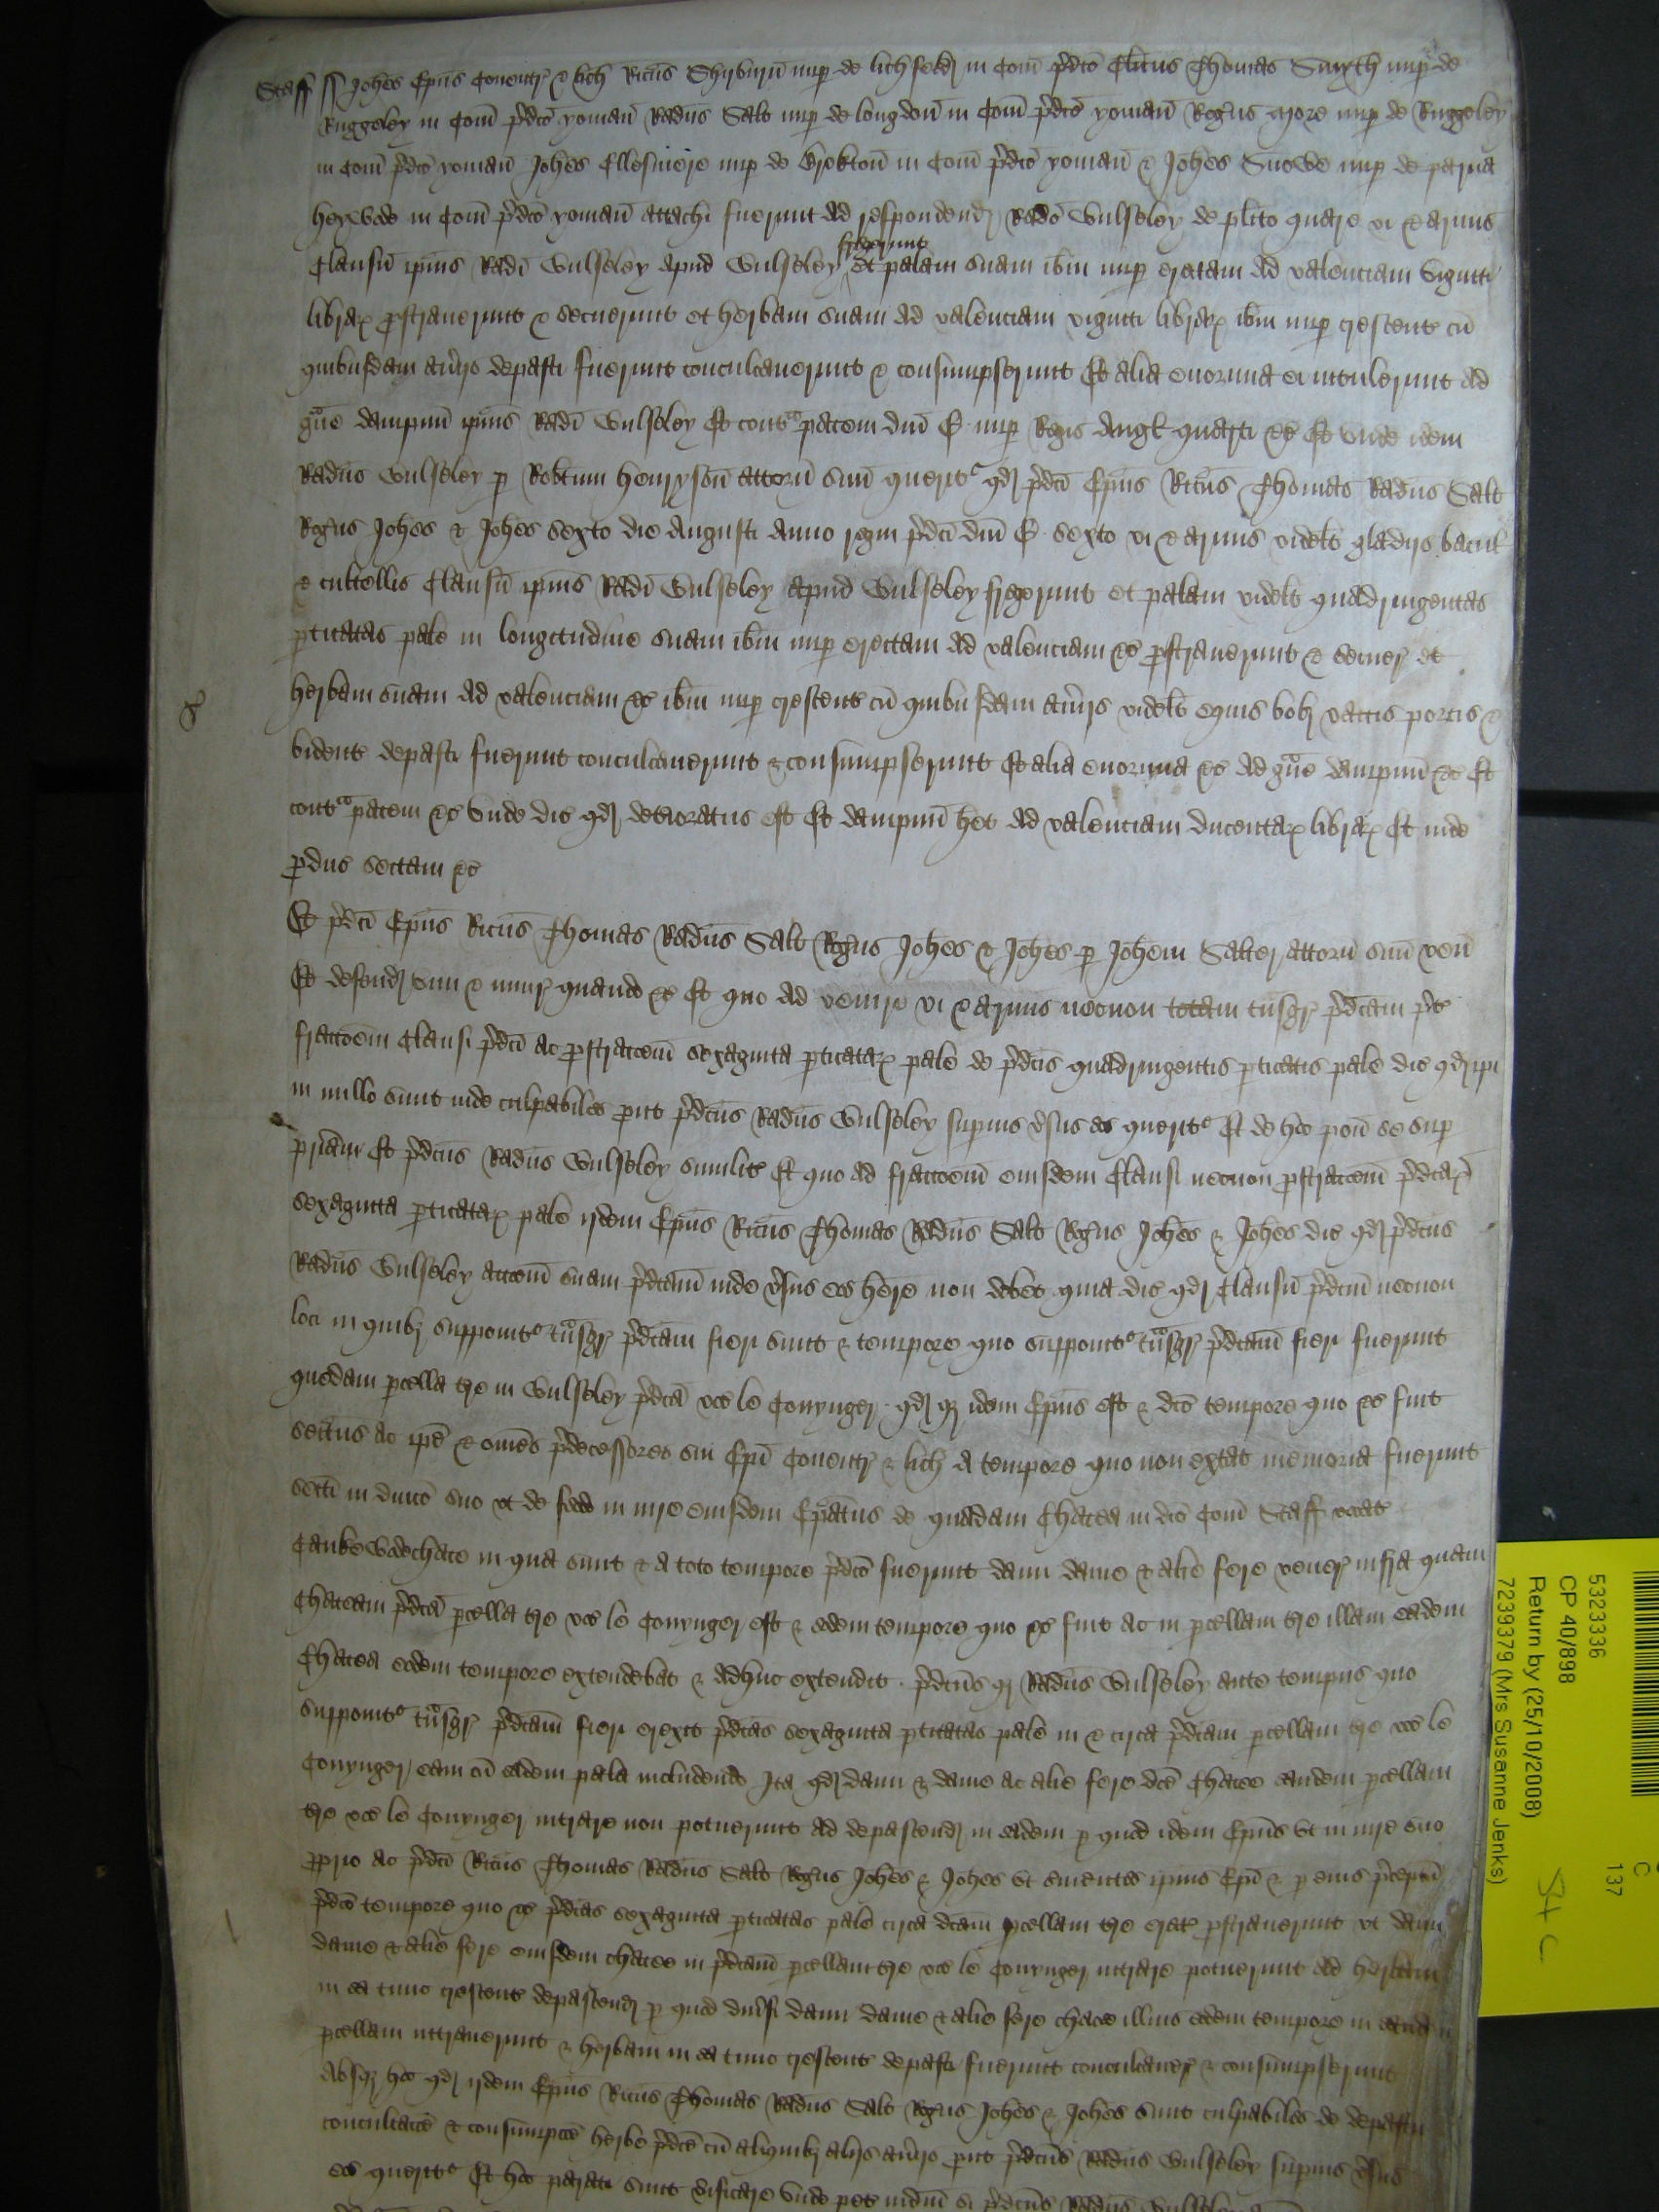 Staff ss Johes Epus Coventr & lich Ricus Shyburn nup de lichfeld in Com pdco Clicus Thomas Smyth nup de
Ruggeley in Com pdco yoman Radus Salt nup de longdon in Com pdco yoman Rogus More nup de Ruggeley
in Com pdco yoman Johes Ellesmere nup de Brokton in Com pdco yoman & Johes Snowe nup de parva
heywode in Com pdco yoman attachi fuerunt ad respondend Rado Wulseley de plito quare vi & armis
Clausu ipius Radi Wulseley apud Wulseley fregerunt et palam suam ibm nup erectam ad valenciam viginti
librar pstraverunt & secuerunt et herbam suam ad valenciam viginti librar ibm nup crescent cu
quibusdam aviis depasti fuerunt conculcaverunt & consumpserunt Et alia enormia ei intulerunt ad
gve dampnu ipius Radi Wulseley Et contra pacem dni E nup Regis Angl quarti &c Et unde idem
Radus Wulseley p Robtum henryson attorn suu querit qd pdci Epus Ricus Thomas Radus Salt
Rogus Johes & Johes sexto die Augusti anno regni pdci dni E sexto vi & armis videlt gladijs bacul
& cultellis Clausu ipius Radi Wulseley apud Wulseley fregerunt et palam videlt quadringentas
pticatas pale in longitudine suam ibm nup erectam ad valenciam &c pstraverunt & secuer et
herbam suam ad valenciam &c ibm nup crescent cu quibusdam aviis videlt equis bob vaccis porcis &
bident depasti fuerunt conculcaverunt & consumpserunt Et alia enormia &c ad gve dampnu &c Et
contra pacem &c Unde dic qd deterioratus est Et dampnu het ad valenciam ducentar librar Et inde
pduc sectam &c
Et pdci Epus Ricus Thomas Radus Salt Rogus Johes & Johes p Johem Salter attorn suu ven
Et defend vim & iniur quando &c Et quo ad venire vi & armis necnon totam tnsgr pdcam pt
fraccoem Clausi pdci ac pstraccoem sexaginta pticatar pale de pdcis quadringentis pticatis pale dic qd ipi
in nullo sunt inde culpabiles put pdcus Radus Wulseley supius vsus eos querit Et de hoc pon se sup
priam Et pdcus Radus Wulseley similit Et quo ad fraccoem eiusdem Clausi necnon pstraccoem pdcar
sexaginta pticatar pale ijdem Epus Ricus Thomas Radus Salt Rogus Johes & Johes dic qd pdcus
Radus Wulseley accoem suam pdcam inde vsus eos here non debet quia dic qd Clausu pdcm necnon
loci in quibz supponit tnsgr pdcam fieri sunt & tempore quo supponit tnsgr pdcam fieri fuerunt
quedam pcella tre in Wulseley pdca voc le Conynger qd qz idem Epus est & dco tempore quo &c fuit
seitus ac ipe & omes pdecessores sui Epi Coventr & lich a tempore quo non extat memoria fuerunt
seiti in dnico suo ut de feodo in iure eiusdem Epatus de quadam Chacea in dco Com Staff vocat
Cankewodechace in qua sunt & a toto tempore pdco fuerunt dami dame & alie fere vener infra quam
Chaceam pdca pcella tre voc le Conynger est & eodem tempore quo &c fuit ac in pcellam tre illam eadem
Chacea eodem tempore extendebat & adhuc extendit pdcus qz Radus Wulseley ante tempus quo
supponit tnsgr pdcam fieri erexit pdcas sexaginta pticatas pale in & circa pdcam pcellam tre voc le
Conynger eam cu eadem pala includendo Ita qd dami & dame ac alie fere dce Chacee eandem pcellam
tre voc le Conynger intrare non potuerunt ad depascend in eadem p quod idem Epus ut in iure suo
pprio ac pdci Ricus Thomas Radus Salt Rogus Johes & Johes ut svientes ipius Epi & p eius pceptu
pdco tempore quo &c pdcas sexaginta pticatas pale circa dcam pcellam tre erect pstraverunt ut dami
dame & alie fere eiusdem chacee in pdcam pcellam tre voc le Conynger intrare potuerunt ad herbam
in ea tunc crescent depascend p quod divsi dami dame & alie fere chacee illius eodem tempore in eandem
pcellam intraverunt & herbam in ea tunc crescent depasti fuerunt conculcaver & consumpserunt
Absqz hoc qd ijdem Epus Ricus Thomas Radus Salt Rogus Johes & Johes sunt culpabiles de depastu
conculcacoe & consumpcoe herbe pdce cu aliquibz alijs aviis put pdcus Radus Wulseley supius vsus
eos querit Et hoc parati sunt vificare unde pet iudm si pdcus Radus Wulseley
5323336
CP 40/898
Return by (25/10/2008)
7239379 (Mrs Susanne Jenks)
C
137